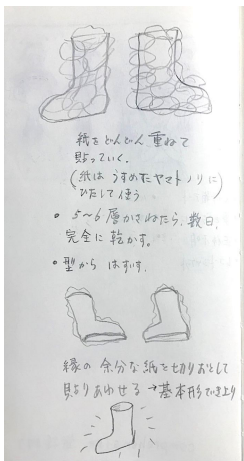 紙をどんどん重ねて
貼っていく.
(紙は うすめたヤマトノリに
ひたして使う)
• 5~6層かさねたら、数日、
完全に乾かす。
• 型から はずす.
縁の 余分な紙を切りおとして
貼りあわせる → 基本形でき上り